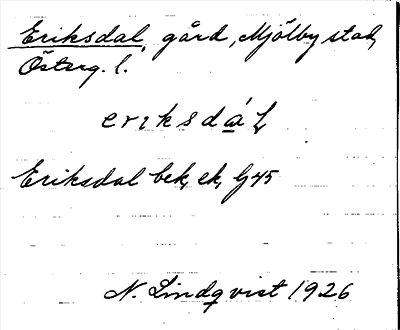 Eriksdal, gård, Mjölby stad,
Österg. l.
eriksdál
Eriksdal bek, ek, Gj 45
N. Lindqvist 1926